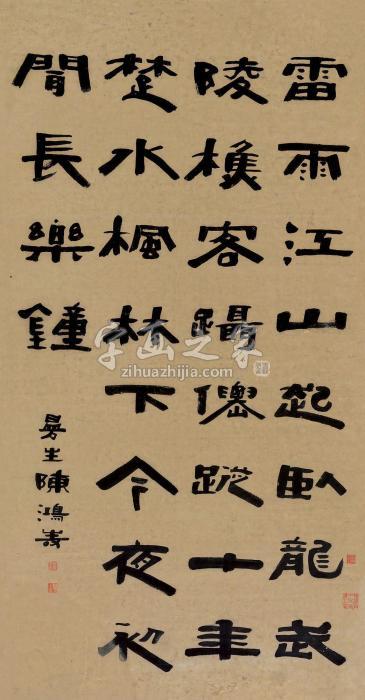 雷雨江山起臥龍武
陵樵客躡僊蹤十年
楚水楓林下今夜初
聞長樂鐘
曼生陳鴻壽
字画之家
zihuazhijia.com